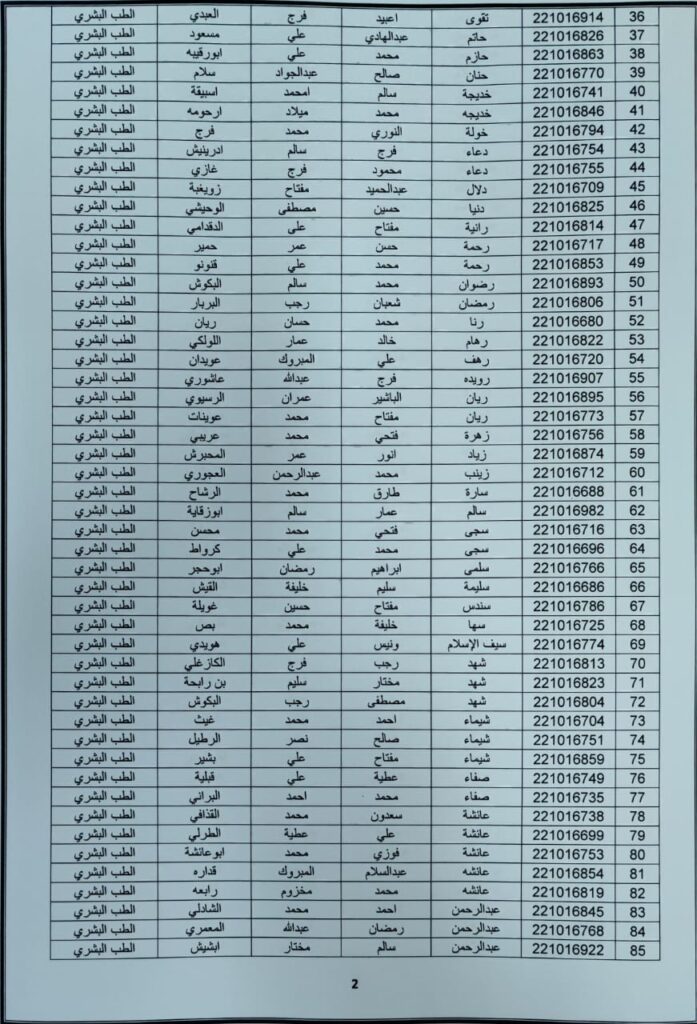 36 221016914 تقوى اعبيد فرج العبدي الطب البشري
37 221016826 حاتم عبدالهادي علي مسعود الطب البشري
38 221016863 حازم محمد علي ابورقيبه الطب البشري
39 221016770 حنان صالح عبدالجواد سلام الطب البشري
40 221016741 خديجة سالم امحمد اسبيقة الطب البشري
41 221016846 خديجه محمد ميلاد ارحومه الطب البشري
42 221016794 خولة النوري محمد فرج الطب البشري
43 221016754 دعاء فرج سالم ادرينيش الطب البشري
44 221016755 دعاء محمود فرج غازي الطب البشري
45 221016709 دلال عبدالحميد مفتاح زويغبة الطب البشري
46 221016825 دنيا حسين مصطفى الوحيشي الطب البشري
47 221016814 رانية مفتاح على الدقدامي الطب البشري
48 221016717 رحمة حسن عمر حمير الطب البشري
49 221016853 رحمة محمد علي قنونو الطب البشري
50 221016893 رضوان محمد سالم البكوش الطب البشري
51 221016806 رمضان شعبان رجب البربار الطب البشري
52 221016680 رنا محمد حسان ريان الطب البشري
53 221016822 رهام خالد عمار اللولكي الطب البشري
54 221016720 رهف علي المبروك عويدان الطب البشري
55 221016907 رويده فرج عبدالله عاشوري الطب البشري
56 221016895 ريان الباشير عمران الرسيوي الطب البشري
57 221016773 ريان مفتاح محمد عوينات الطب البشري
58 221016756 زهرة فتحي محمد عريبي الطب البشري
59 221016874 زياد انور عمر المحبرش الطب البشري
60 221016712 زينب محمد عبدالرحمن العجوري الطب البشري
61 221016688 سارة طارق محمد الرشاح الطب البشري
62 221016982 سالم عمار سالم ابوزقاية الطب البشري
63 221016716 سجى فتحي محمد محسن الطب البشري
64 221016696 سجى محمد علي كرواط الطب البشري
65 221016766 سلمى ابراهيم رمضان ابوحجر الطب البشري
66 221016686 سليمة سليم خليفة القيش الطب البشري
67 221016786 سندس مفتاح حسين غويلة الطب البشري
68 221016725 سها خليفة محمد بص الطب البشري
69 221016774 سيف الإسلام ونيس علي هويدي الطب البشري
70 221016813 شهد رجب فرج الكازغلي الطب البشري
71 221016823 شهد مختار سليم بن رابحة الطب البشري
72 221016804 شهد مصطفى رجب البكوش الطب البشري
73 221016704 شيماء احمد محمد غيث الطب البشري
74 221016751 شيماء صالح نصر الرطيل الطب البشري
75 221016859 شيماء مفتاح علي بشير الطب البشري
76 221016749 صفاء عطية علي قبلية الطب البشري
77 221016735 صفاء محمد احمد البراني الطب البشري
78 221016738 عائشة سعدون محمد القذافي الطب البشري
79 221016699 عائشة علي عطية الطرلي الطب البشري
80 221016753 عائشة فوزي محمد ابوعائشة الطب البشري
81 221016854 عائشه عبدالسلام المبروك قداره الطب البشري
82 221016819 عائشه محمد مخزوم رابعه الطب البشري
83 221016845 عبدالرحمن احمد محمد الشادلي الطب البشري
84 221016768 عبدالرحمن رمضان عبدالله المعمري الطب البشري
85 221016922 عبدالرحمن سالم مختار ابشيش الطب البشري
2